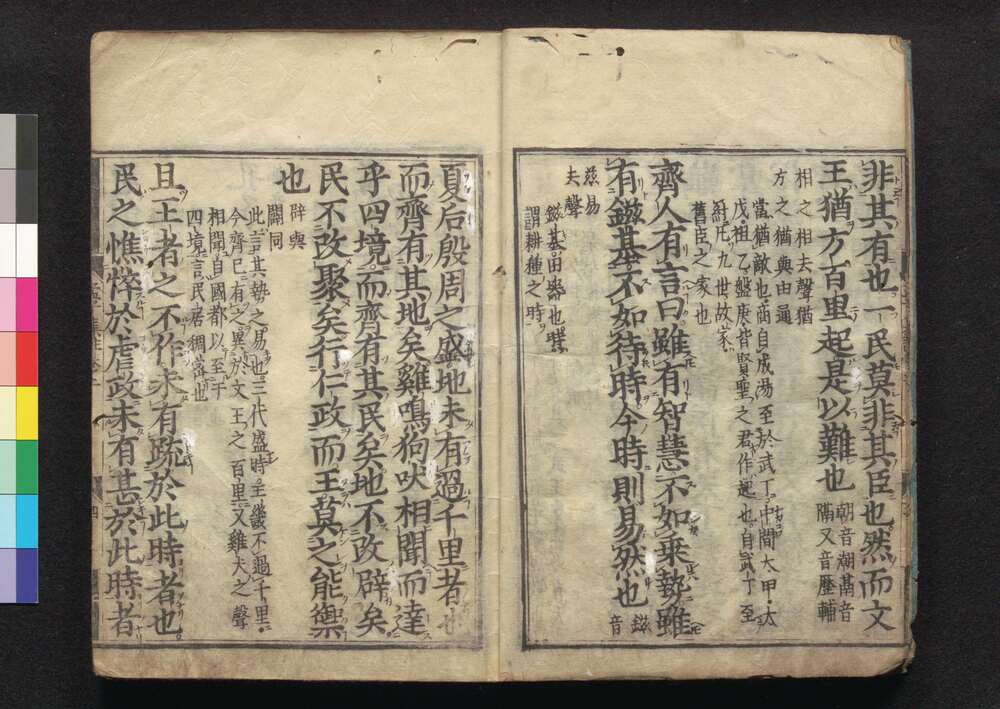 非其有也一民莫非其臣也然而文
王猶方百里起是以難也
朝音潮鬲音
隔又音歷輔
相之相去聲猶
方之猶與由通
當猶敵也商自成湯至於武丁中間大甲大
戊祖乙盤庚皆賢聖之君作起也自武丁至
紂凡九世故家
舊臣之家也
齊人有言曰雖有智慧不如乘勢雖
有鎡基不如待時今時則易然也
鎡音
茲易
去聲
鎡基田器也時
謂耕種之時
夏后殷周之盛地未有過千里者也
而齊有其地矣雞鳴狗吠相聞而達
乎四境而齊有其民矣地不改辟矣
民不改聚矣行仁政而王莫之能禦
也
辟與
闢同
此言其勢之易也三代盛時王畿不過千里
今齊已有之異於文王之百里又雞犬之聲
相聞自國都以至于
四境言民居稠密也
且王者之不作未有疏於此時者也
民之憔悴於虐政未有甚於此時者